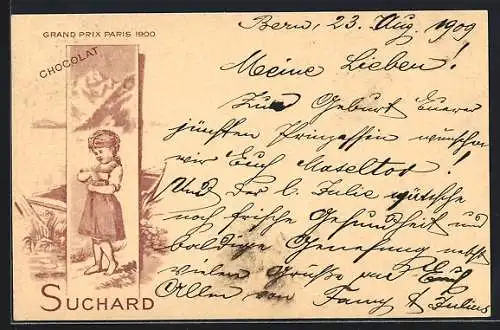 GRAND PRIX PARIS 1900
CHOCOLAT
SUCHARD
Bern, 23. Aug. 1909
Meine Lieben!
Zur Geburt Eurer
jüngsten Prinzessin wünschen
wir Euch Maseltov!
Und der l. Julie wünsche
noch frische Gesundheit und
baldige Genesung nebst
vielen Grüsse an Euch
Allen von Fanny & Julius